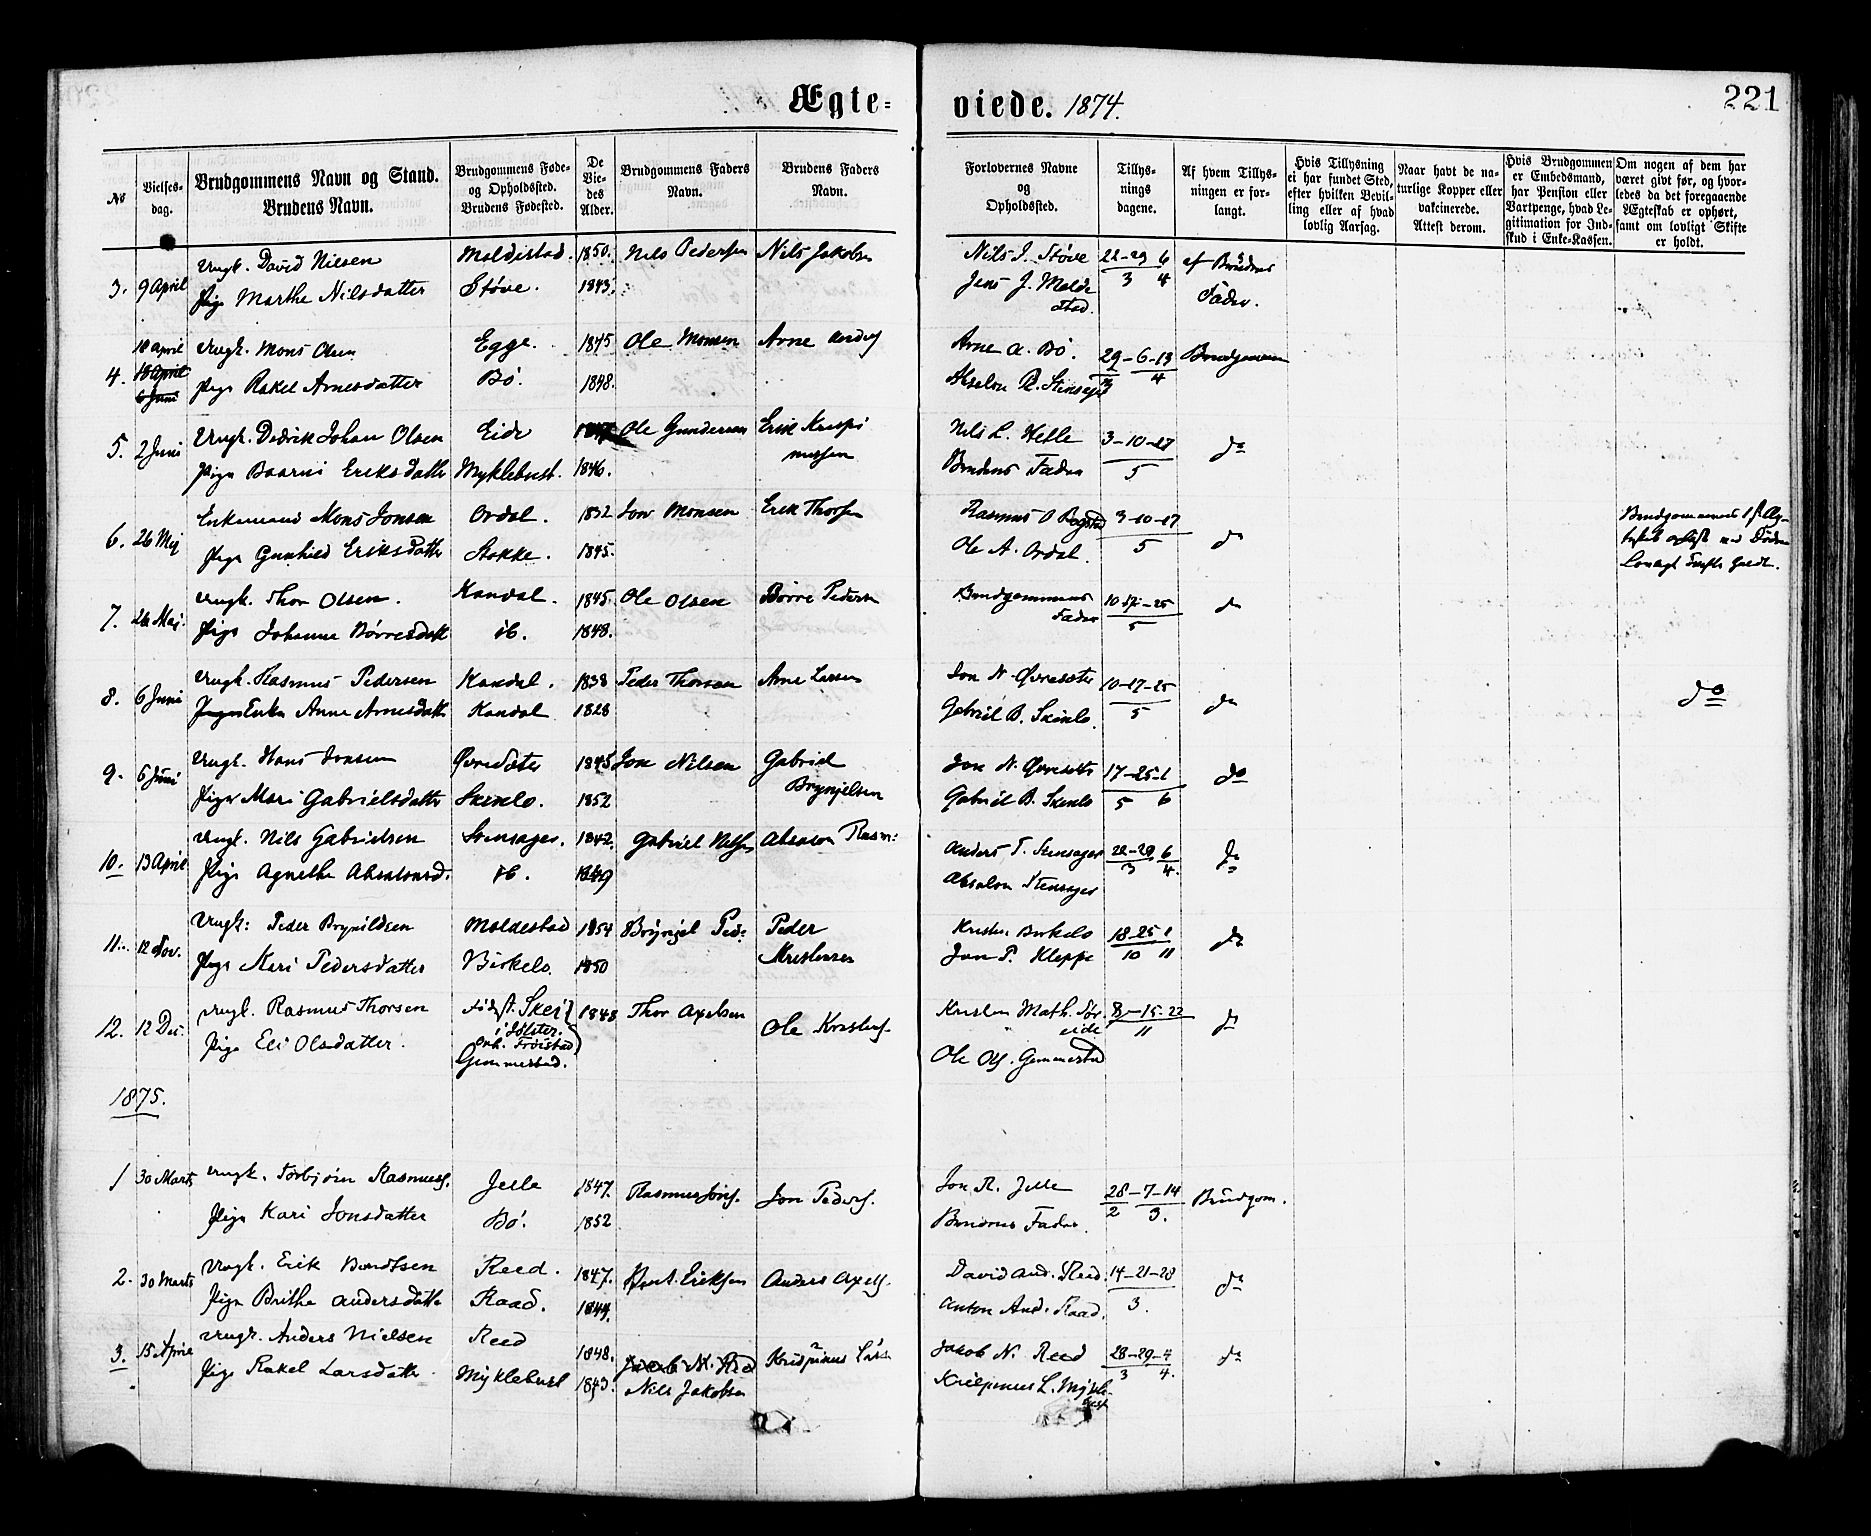 Ægte-
viede. 1874.
221
No
Vielses-
dag.
Brudgommens Navn og Stand.
Brudens Navn.
Brudgommens Føde-
og Opholdssted.
Brudens Fødested.
De
Vie-
des
Alder.
Brudgommens Faders
Navn.
Brudens Faders
Navn.
Forlovernes Navne
og
Opholdssted.
Tillys-
nings
dagene.
Af hvem Tillys-
ningen er for-
langt.
Hvis Tillysning
ei har fundet Sted,
efter hvilken Bevil-
ling eller af hvad
lovlig Aarsag.
Naar havt de na-
turlige Kopper eller
vakcinerede.
Attest derom.
Hvis Brudgommen
er Embedsmand,
har Pension eller
Vartpenge, hvad Le-
gitimation for Ind-
skud i Enke-Kassen.
Om nogen af dem har
været givt før, og hvor-
ledes da det foregaaende
Ægteskab er ophørt,
samt om lovligt Skifte
er holdt.
3. 9 April Ungk. David Nilsen Moldestad. 1850. Nils Pedersen Nils Jakobsen Nils J. Støve 22-29 6 af Brudens
Pige Marthe Nilsdatter Støve. 1843. Jens J. Molde 3 4 Fader.
stad.
18 April Ungk. Mons Olsen Egge. 1845 Ole Monsen Arne Anders Arne A. Bø. 29-6-13 Brudgommen
4. 18 April Pige Rakel Arnesdatter Bø. 1848. Absalon R. Stensager 3 4
6 Juni
5. 2 Juni Ungk. Didrik Johan Olsen Eide 1847 Ole Gundersen Erik Krispi Nils L. Helle 3-10-17 do
Pige Baarni Eriksdatter Myklebust. 1846. nussen Brudens Fader 5
6. 26 Mai Enkemand Mons Jonsen Ordal. 1832 Jon Monsen Erik Thorsen Rasmus O 3-10-17 do Brudgommens 1ste Æg-
Pige Gunhild Eriksdatter Stokke. 1845. Ole A. Ordal. 5 teskab opløst ved Døden
Lovligt Skifte holdt.
7. 26 Mai. Ungk. Thor Olsen. Kandal. 1845. Ole Olsen Børre Pedersen Brudgommens 10-17-25 do
Pige Johanne Børresdatt ib. 1848. Fader 5
8. 6 Juni Ungk. Rasmus Pedersen Kandal. 1838 Peder Thorsen Arne Larsen Jon N. Øvresæter 10-17-25 do do
Pige Enke Anne Arnesdatt Kandal 1828 Gabriel B. Skinlo. 5
9. 6 Juni Ungk. Hans Jonsen Øvresæter 1845 Jon Nilsen Gabriel Jon N. Øvresæter 17-25-1 do
Pige Mari Gabrielsdatter Skinlo. 1852 Brynjelsen Gabriel B. Skinlo 5 6
10. 13 April Ungk. Nils Gabrielsen Stensager. 1842 Gabriel Nilsen Absalon Rasm: Anders T. Stensager 22-29 6 do
Pige Agnethe Absalonsd. ib. 1849 Absalon Stensager 3 4.
11. 12 Nov. Ungk: Peder Brynildsen Moldestad 1854 Brynjel Ped: Peder Kristen Birkelo 18-25 1 do
Pige Kari Pedersdatter Birkelo. 1850 Kristensen Jon P. Kleppe 10 11
12. 12 Dec. Ungk. Rasmus Thorsen Fødest. Skei 1848 Thor Axelsen Ole Kristens. Kristen Math. Sør 8-15-22 do
Pige Eli Olsdatter. i Jølster. eide 11
Oph. Frøistad
Gimmestad. Ole Ols. Gemmestad
1875.
1 30 Marts Ungk. Torbjørn Rasmuss. Jelle 1847. Rasmus Jons. Jon Peders. Jon R. Jelle 28-7-14 Brudgom.
Pige Kari Jonsdatter Bø. 1852 Brudens Fader. 2 3.
2. 30 Marts Ungk. Erik Bendtsen Reed. 1847. Bent. Eriksen Anders Axels. David And. Reed. 14-21-28 do
Pige Brithe Andersdatte Raad. 1844. Anton And. Raad. 3.
3. 15 April Ungk. Anders Nielsen Reed 1848. Jakob N. Reed Krispinus Lars Jakob N. Reed 28-29-4 do
Pige Rakel Larsdatter Myklebust 1843. Nils Jakobsen Krispinus L. Mykle- 3 4.
bust